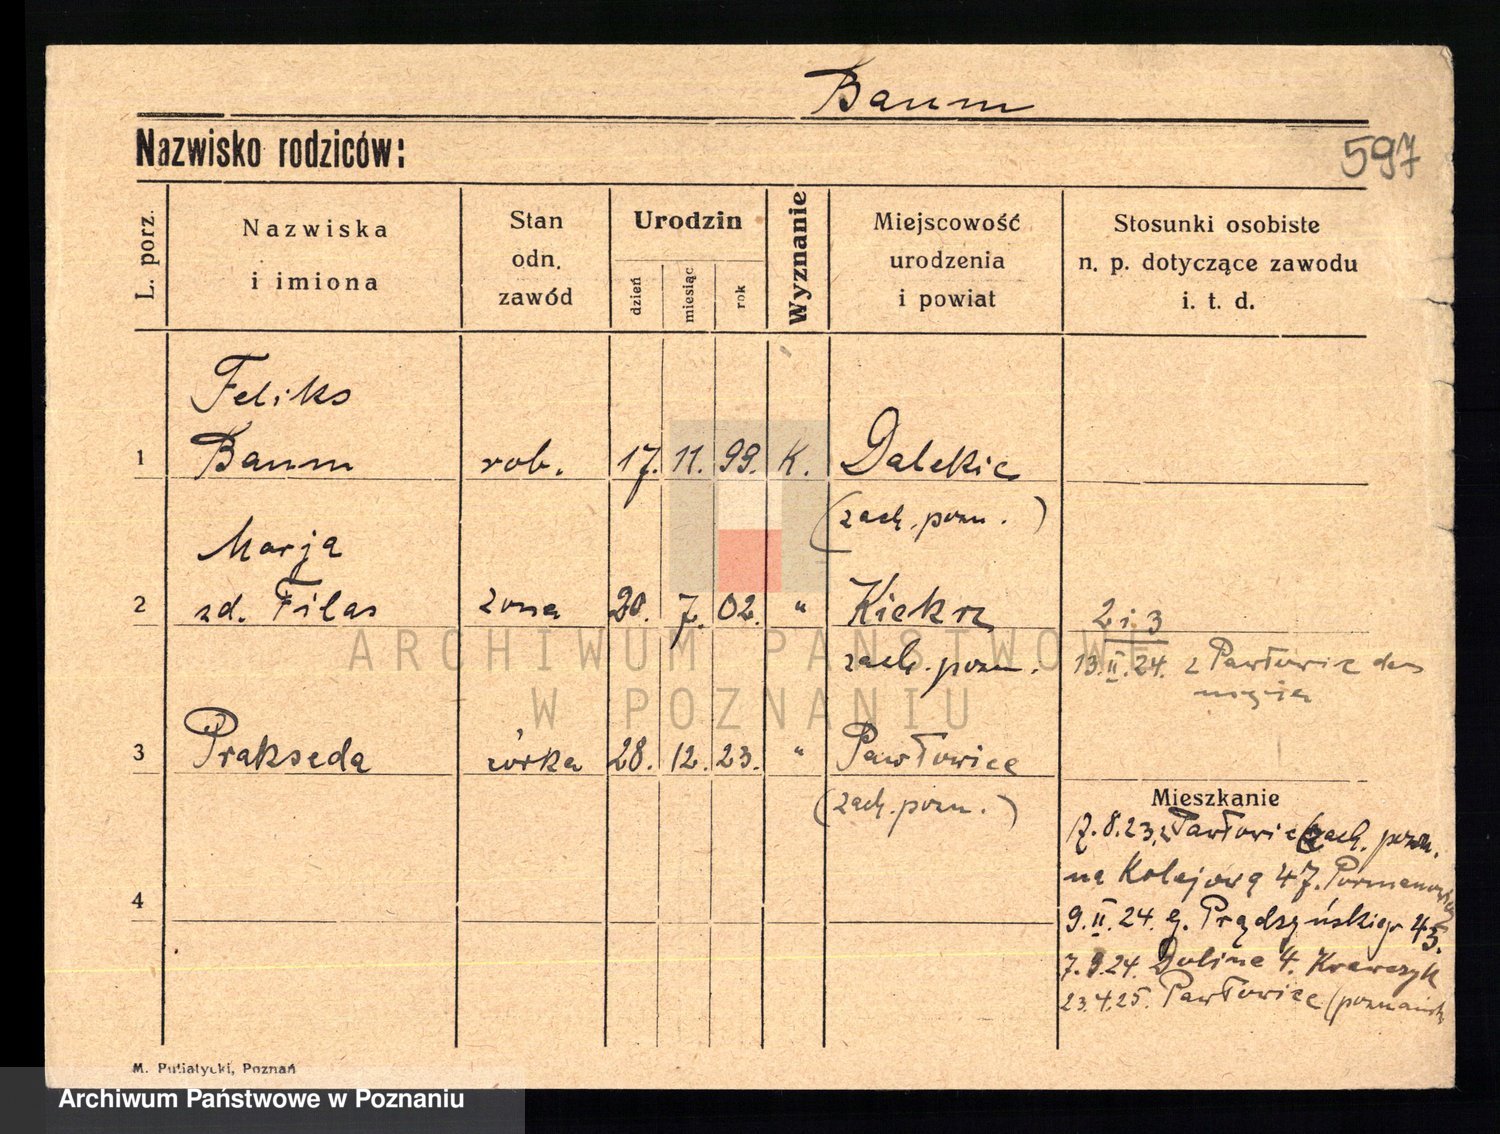 Baum
Nazwisko rodziców:
597
L. porz.
Nazwiska
i imiona
Stan
odn.
zawód
Urodzin
dzień
miesiąc
rok
Wyznanie
Miejscowość
urodzenia
i powiat
Stosunki osobiste
n. p. dotyczące zawodu
i. t. d.
Feliks
1 Baum rob. 17. 11. 99. K. Dalekie
(zach. pozn.)
Marja
2 zd. Filas żona 20. 7. 02. " Kiekrz
zach. pozn.
2 i 3
13.II.24. z Pawłowic do
męża
3 Prakseda córka 28. 12. 23. " Pawłowice
(zach. pozn.)
Mieszkanie
17.8.23. z Pawłowic (zach. pozn.
na Kolejową 47.
9.II.24. Prądzyńskiego 45.
7.9.24. Dolina 4. Krawczyk
23.4.25. Pawłowice
4
M. Putiatycki, Poznań
ARCHIWUM PAŃSTWOWE
W POZNANIU
Archiwum Państwowe w Poznaniu